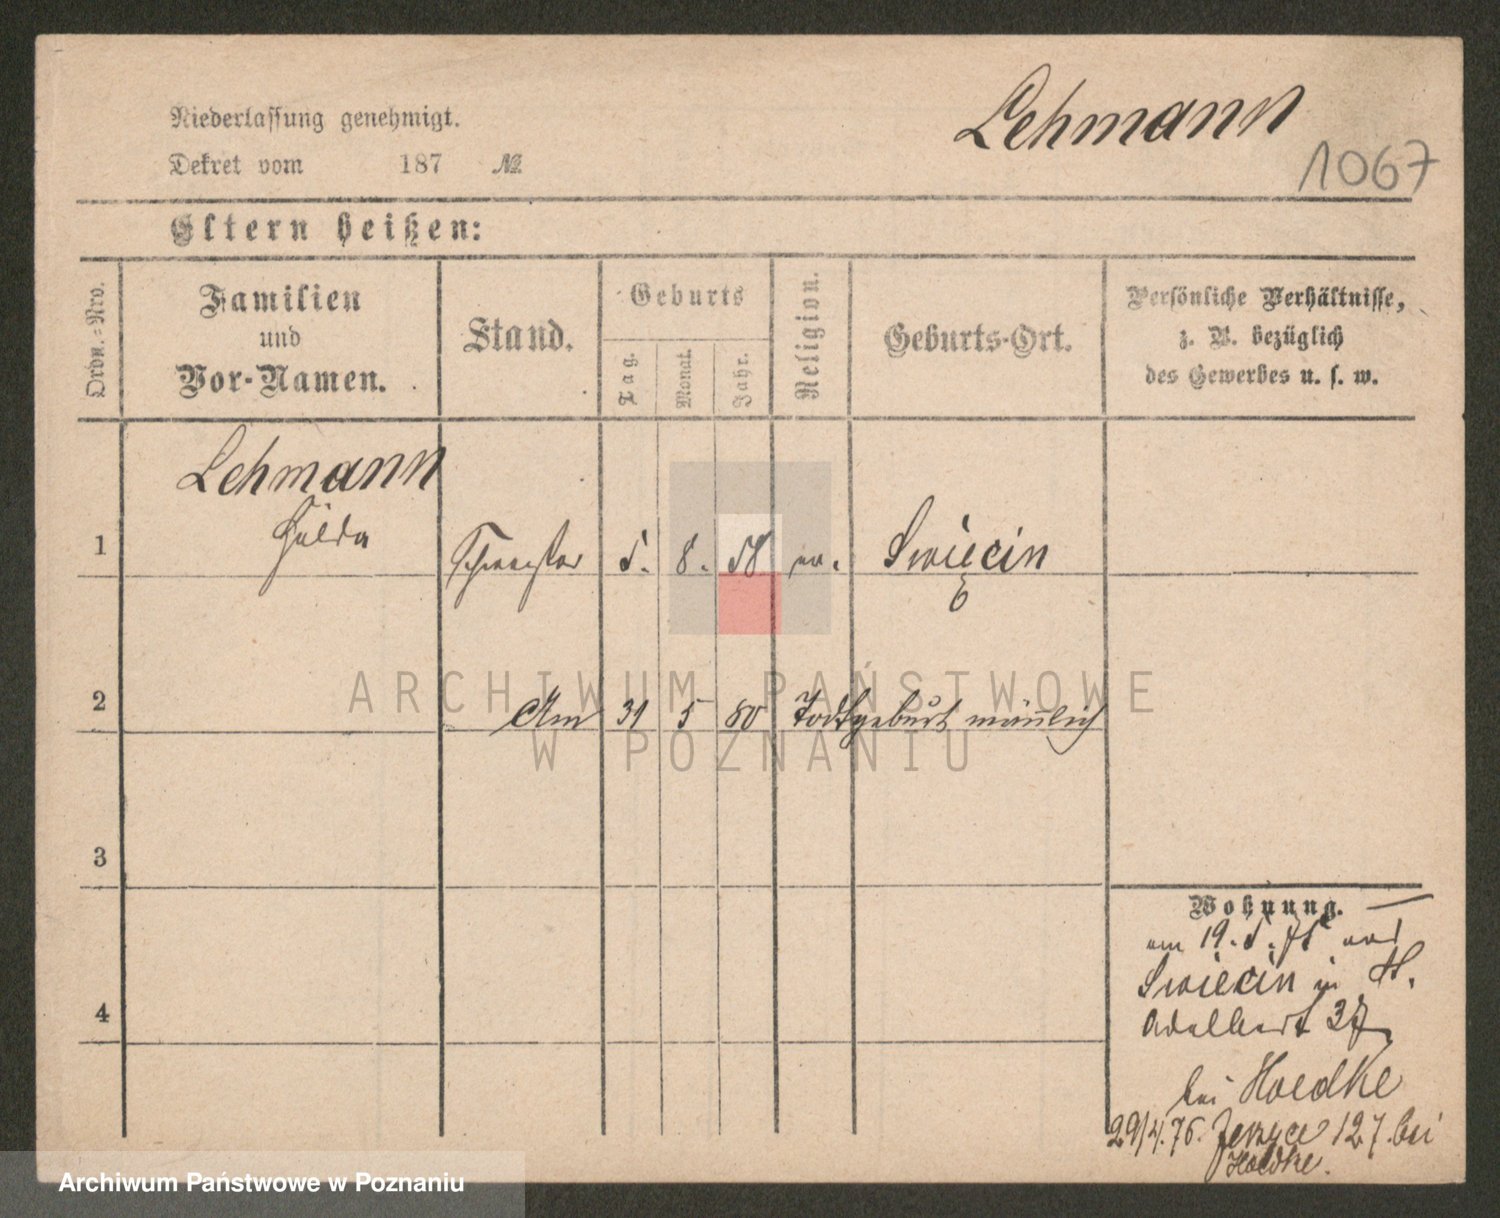 Lehmann
1067
Niederlassung genehmigt.
Dekret vom 187 №
Eltern heißen:
Ordn.-Nro.
Familien
und
Vor-Namen.
Stand.
Geburts
Tag.
Monat.
Jahr.
Religion.
Geburts-Ort.
Persönliche Verhältnisse,
z. B. bezüglich
des Gewerbes u. s. w.
Lehmann
1 Hulda Schwester 5. 8. 58 ev. Swięcin
2 Am 31 5 80 Todtgeburt männlich
3
4
Wohnung.
am 19. 5. 75 aus
Swięcin in St.
Adalbert 37
bei Hoedke
29/4.76. Jerzyce 127. bei
Hoedke.
ARCHIWUM PAŃSTWOWE
W POZNANIU
Archiwum Państwowe w Poznaniu